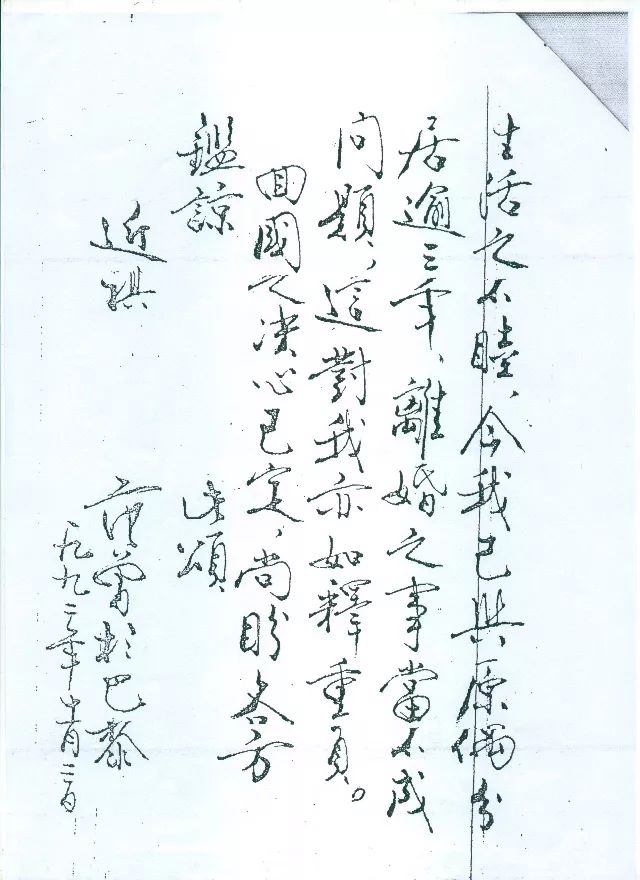 生活之不睦、令我已與原偶分
居逾三年、離婚之事當不成
问題、這對我亦如釋重負。
回國之决心已定、尚盼各方
鑑諒 此頌
近祺
范曾於巴黎
一九九三年 月二日